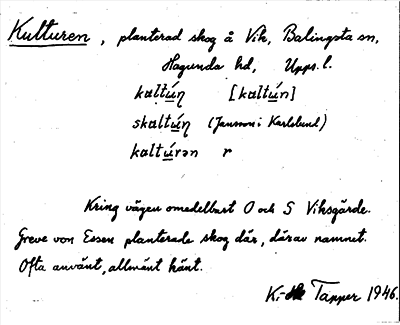 Kulturen, planterad skog å Vik, Balingsta sn,
Hagunda hd, Upps. l.
kaltúɳ [kaltún]
skaltúɳ (Jansson i Karlslund)
kaltúrən r
Kring vägen omedelbart O och S Viksgärde.
Greve von Essen planterade skog där, därav namnet.
Ofta använt, allmänt känt.
Tapper 1946.